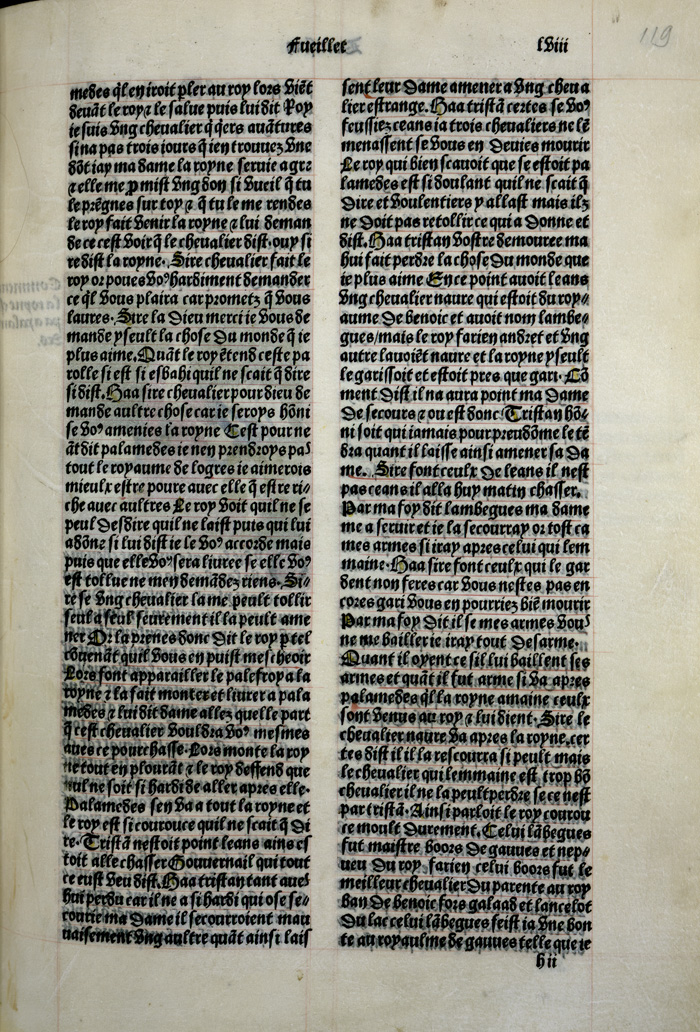 Fueillet
lviii
119
medes q̄l en iroit pler au roy lors viēt
deuāt le roy ⁊ le salue puis lui dit Roy
ie suis vng cheualier q̄ q̄ers auātures
si na pas trois iours q̄ ien trouuez vne
dōt iay ma dame la royne seruie a gre
⁊ elle me ꝓmist vng don si vueil q̄ tu
le prēgnes sur toy ⁊ q̄ tu le me rendes
le roy fait venir la royne ⁊ lui deman
de ce cest voir q̄ le cheualier dist. ouy si
re dist la royne. Sire cheualier fait le
roy or poues voꝰ hardiment demander
ce q̄l vous plaira car prometz q̄ vous
laures. Sire la dieu merci ie vous de
mande yseult la chose du monde q̄ ie
plus aime. Quāt le roy ētend ceste pa
rolle si est si esbahi quil ne scait q̄ dire
si dist. Haa sire cheualier pour dieu de
mande aultre chose car ie seroys hōni
se voꝰ amenies la royne Cest pour ne
āt dit palamedes ie nen prendroys pas
tout le royaume de logres ie aimerois
mieulx estre poure auec elle q̄ estre ri⸗
che auec aultres Le roy voit quil ne se
peul desdire quil ne laist puis qui lui
a dōne si lui dist ie le voꝰ accorde mais
puis que elle voꝰ sera liuree se elle voꝰ
est tollue ne men demādez riens. Si⸗
re se vng cheualier la me peult tollir
seul a seul seurement il la peult ame
ner Or la prenes donc dit le roy p tel
couenāt quil vous en puist mescheoir
Lors font apparailler le palefroy a la
royne ⁊ la fait monter et liurer a pala
medes ⁊ lui dit dame allez quelle part
q̄ cest cheualier vouldra voꝰ mesmes
aues ce pourchasse. Lors monte la roy
ne tout en plourāt ⁊ le roy deffend que
nul ne soit si hardi de aller apres elle.
Palamedes sen va a tout la royne et
le roy est si courouce quil ne scait q̄ di
re. Tristā nestoit point leans ains es
toit alle chasser Gouuernail qui tout
ce eust veu dist. Haa tristan tant aues
hui perdu car il ne a si hardi qui ose se⸗
courir ma dame il secourroient mau
uaisement vng aultre quāt ainsi lais
sent leur dame amener a vng cheua
lier estrange. Haa tristā certes se voꝰ
feussiez ceans ia trois cheualiers ne lē
menassent se vous en deuies mourir
Le roy qui bien scauoit que se estoit pa
lamedes est si doulant quil ne scait q̄
dire et voulentiers y allast mais ilz
ne doit pas retollir ce qui a donne et
dist. Haa tristan vostre demouree ma
hui fait perdre la chose du monde que
ie plus aime En ce point auoit leans
vng cheualier naure qui estoit du roy⸗
aume de benoic et auoit nom lambe⸗
gues/mais le roy farien andret et vng
autre lauoiēt naure et la royne yseult
le garissoit et estoit pres que gari. Cō
ment dist il na aura point ma dame
de secours ⁊ ou est donc Tristan hō⸗
ni soit qui iamais pour preudōme le tē
dra quant il laisse ainsi amener sa da
me. Sire font ceulx de leans il nest
pas ceans il alla huy matin chasser.
Par ma foy dit lambegues ma dame
me a seruir et ie la secourray or tost ca
mes armes si iray apres celui qui lem
maine. Haa sire font ceulx qui le gar
dent non feres car vous nestes pas en
cores gari vous en pourriez biē mourir
Par ma foy dit il se mes armes vous
ne me bailler ie iray tout desarme.
Quant il oyent ce sil lui baillent ses
armes et quāt il fut arme si va apres
palamedes q̄l la royne amaine ceulx
sont venus au roy ⁊ lui dient. Sire le
cheualier naure va apres la royne. cer
tes dist il il la rescourra si peult mais
le cheualier qui lemmaine est trop bō
cheualier il ne la peult perdre se ce nest
par tristā. Ainsi parloit le roy courou
ce moult durement. Celui lābegues
fut maistre boors de gauues et nep⸗
ueu du roy farien celui boors fut le
meilleur cheualier du parente au roy
ban de benoic fors galaad et lancelot
du lac celui lābegues feist ia vne hon
te au royaulme de gauues telle que ie
h ii